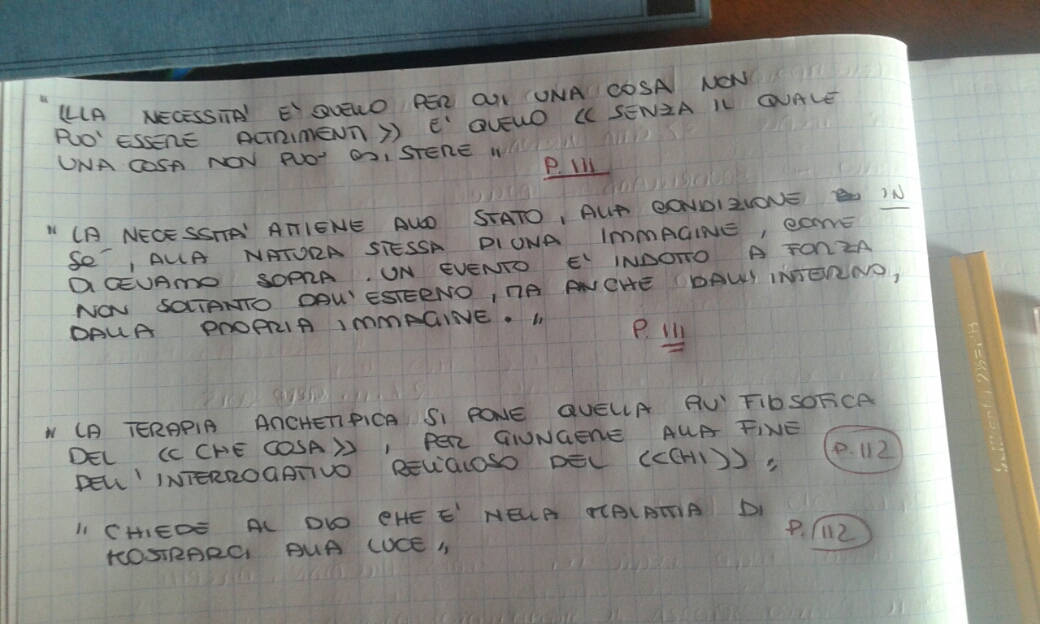 " LLLA NECESSITA' E' QUELLO PER CUI UNA COSA NON
PUO' ESSERE ALTRIMENTI >> E' QUELLO << SENZA IL QUALE
UNA COSA NON PUO' ESISTERE "
P. 111
" LA NECESSITA' ATTIENE ALLO STATO, ALLA CONDIZIONE IN
SE', ALLA NATURA STESSA DI UNA IMMAGINE, COME
DICEVAMO SOPRA. UN EVENTO E' INDOTTO A FORZA
NON SOLTANTO DALL'ESTERNO, MA ANCHE DALL'INTERNO,
DALLA PROPRIA IMMAGINE. "
P. 111
" LA TERAPIA ARCHETIPICA SI PONE QUELLA PIU' FILOSOFICA
DEL << CHE COSA >>, PER GIUNGERE ALLA FINE
DELL'INTERROGATIVO RELIGIOSO DEL <<CHI>> "
P. 112
" CHIEDE AL DIO CHE E' NELLA MALATTIA DI
MOSTRARCI ALLA LUCE "
P. 112